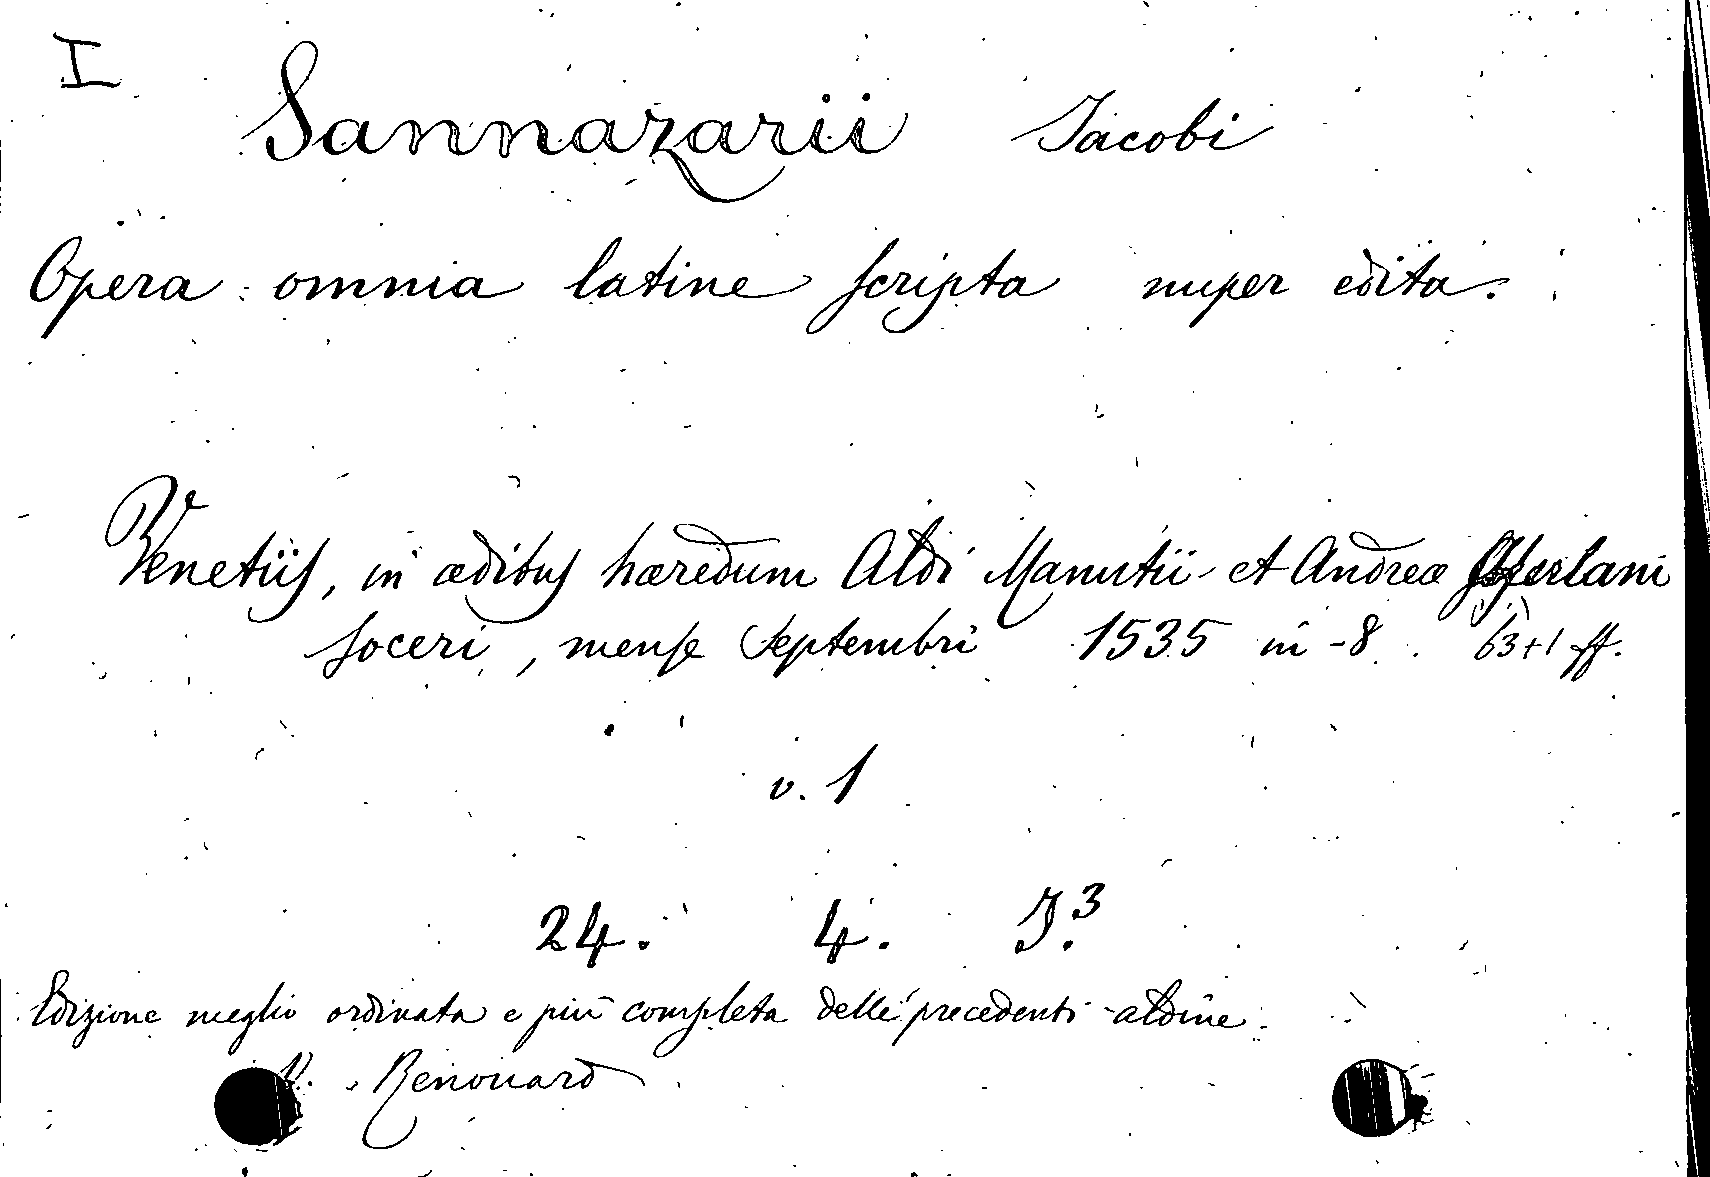 I
Sannazarii Jacobi
Opera omnia latine scripta nuper edita.
Venetiis, in ædibus hæredum Aldi Manutii et Andreæ Asserlani
soceri, mense Septembri 1535 in-8. 63+1 ff.
v. 1
24. 4. J.3
Edizione meglio ordinata e più completa delle precedenti aldine
V. Renouard